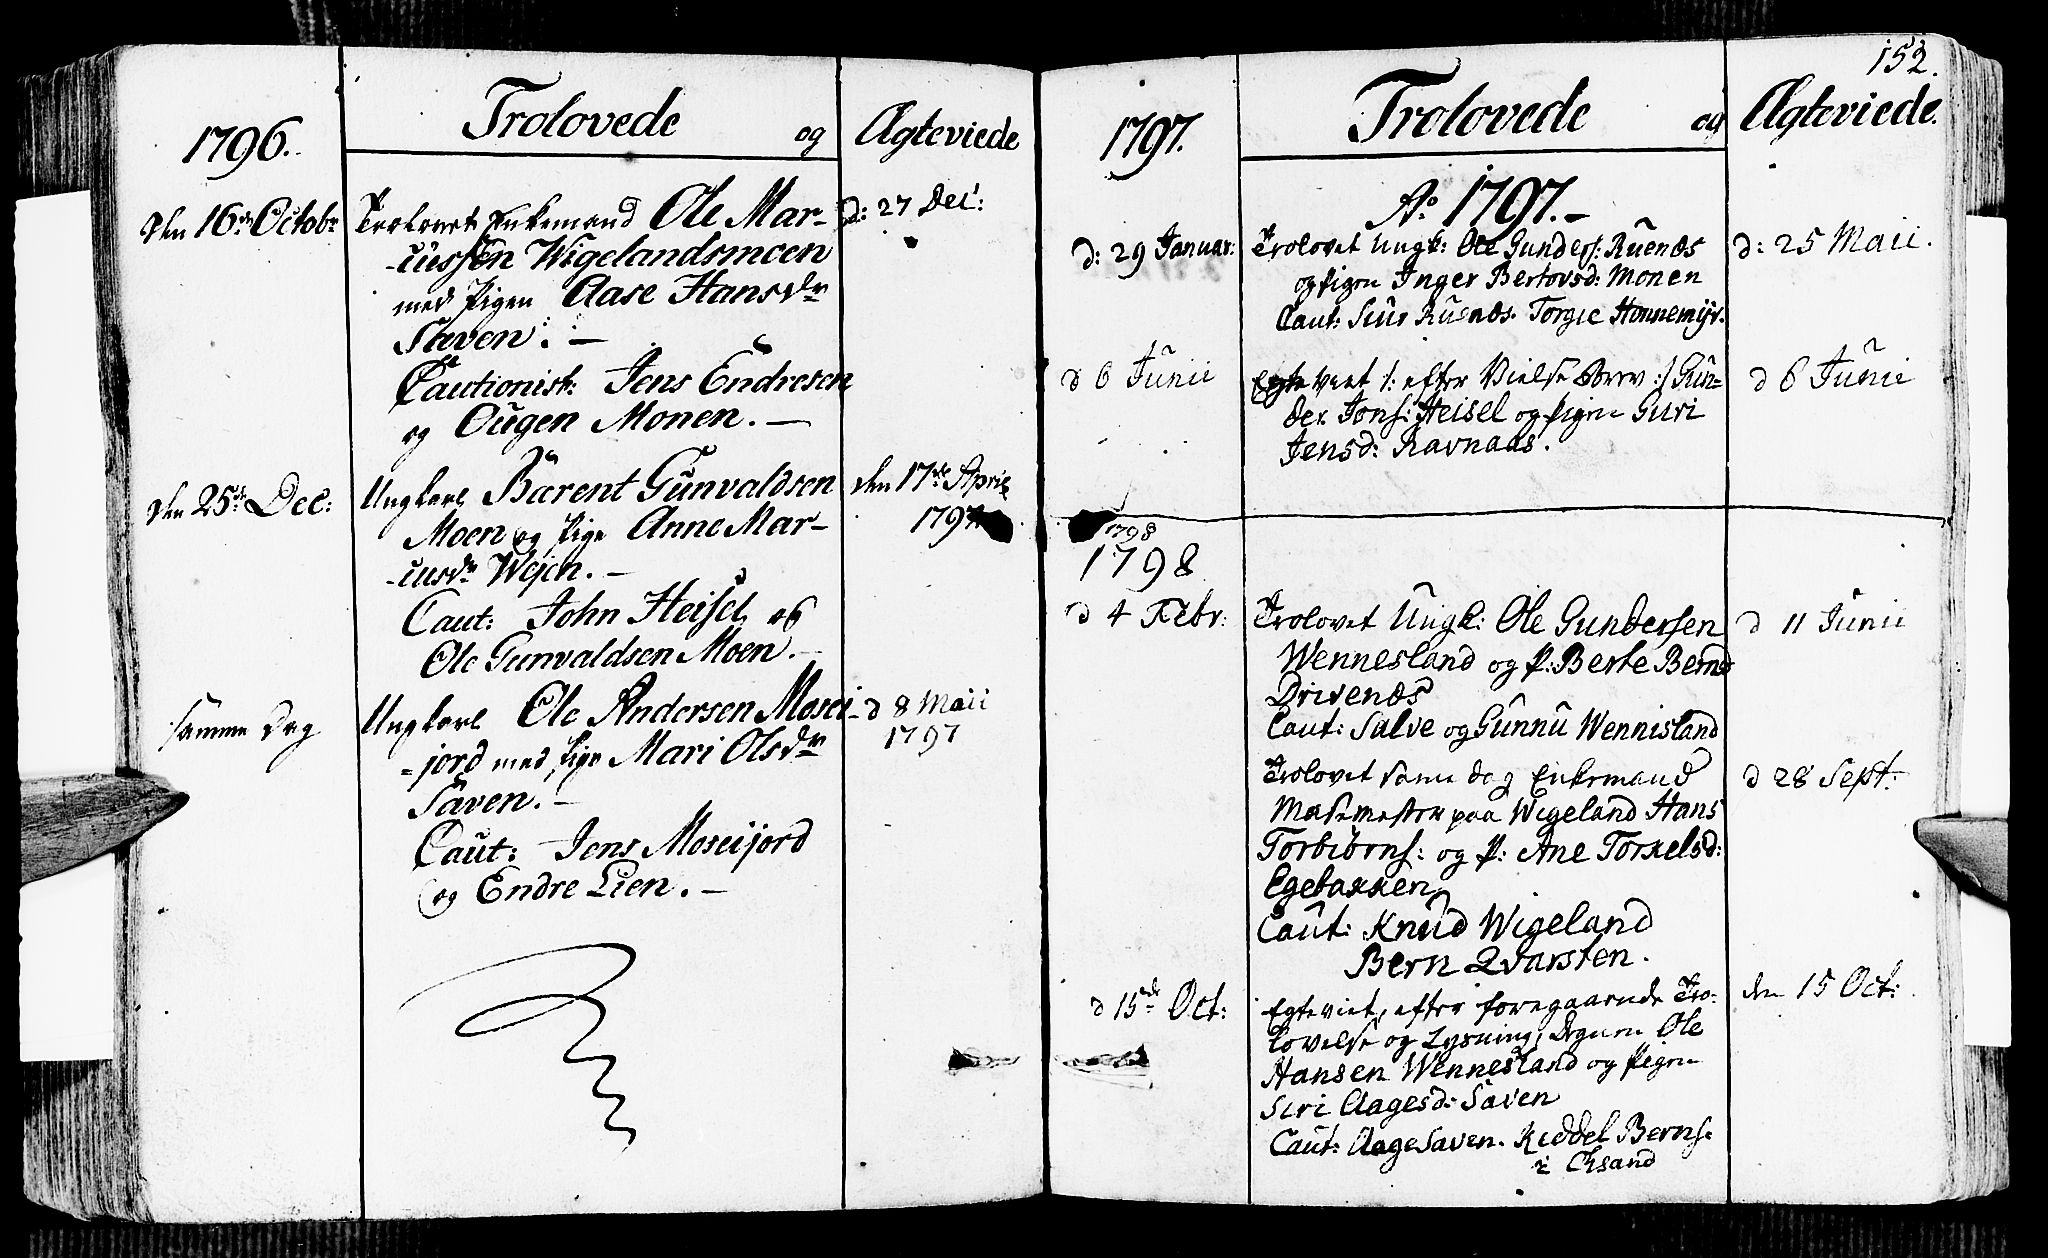 1796.
Trolovede og
Ægteviede
Den 16de Octobr
Trolovet Enkemand Ole Mar-
d: 27 Dec:
-cussen Wigelandsmoen
med Pigen Aase Hansdr
Saven. -
Cautionist: Jens Endresen
og Ougen Monen. -
Den 25de Dec:
Ungkarl Bærent Gunvaldsen
den 17de April
1797
Moen og Pige Anne Mar-
-cusdr Wejen. -
Caut: John Heisel og
Ole Gunvaldsen Moen. -
samme Dag
Ungkarl Ole Andersen Mosei-
d 8 Maii
1797
-jord med Pige Mari Olsdr
Saven. -
Caut: Jens Moseijord
og Endre Lien. -
152.
1797.
Trolovede og
Ægteviede.
Ao 1797. -
d: 29 Januar:
Trolovet Ungk: Ole Gunders: Ruenæs
d: 25 Maii.
og Pigen Inger Bertovsd: Monen
Caut: Siur Rusnæs. Torgie Honnemyr.
d 6 Junii
Egteviet /: efter Vielse Brev :/ Gun-
d 6 Junii
der Jons: Heisel og Pigen Guri
Jensd: Ravnaas.
1798
1798
d 4 Febr:
Trolovet Ungk: Ole Gundersen
d 11 Junii
Wennesland og P: Berte Bernds
Drivenæs
Caut: Salve og Gunnu Wennisland
Trolovet samme dag Enkemand
d 28 Sept:
Masemester paa Wigeland Hans
Torbiørns: og P: Ane Torkelsd:
Egebakken
Caut: Knud Wigeland
Bern Qvarsten.
d 15de Oct:
Egteviet, efter foregaaende Tro-
den 15 Oct:
lovelse og Lysning, Ole
Hansen Wennesland og Pigen
Siri Aagesd: Saven
Caut: Aage Saven. Keddel Berns.
i Chsand